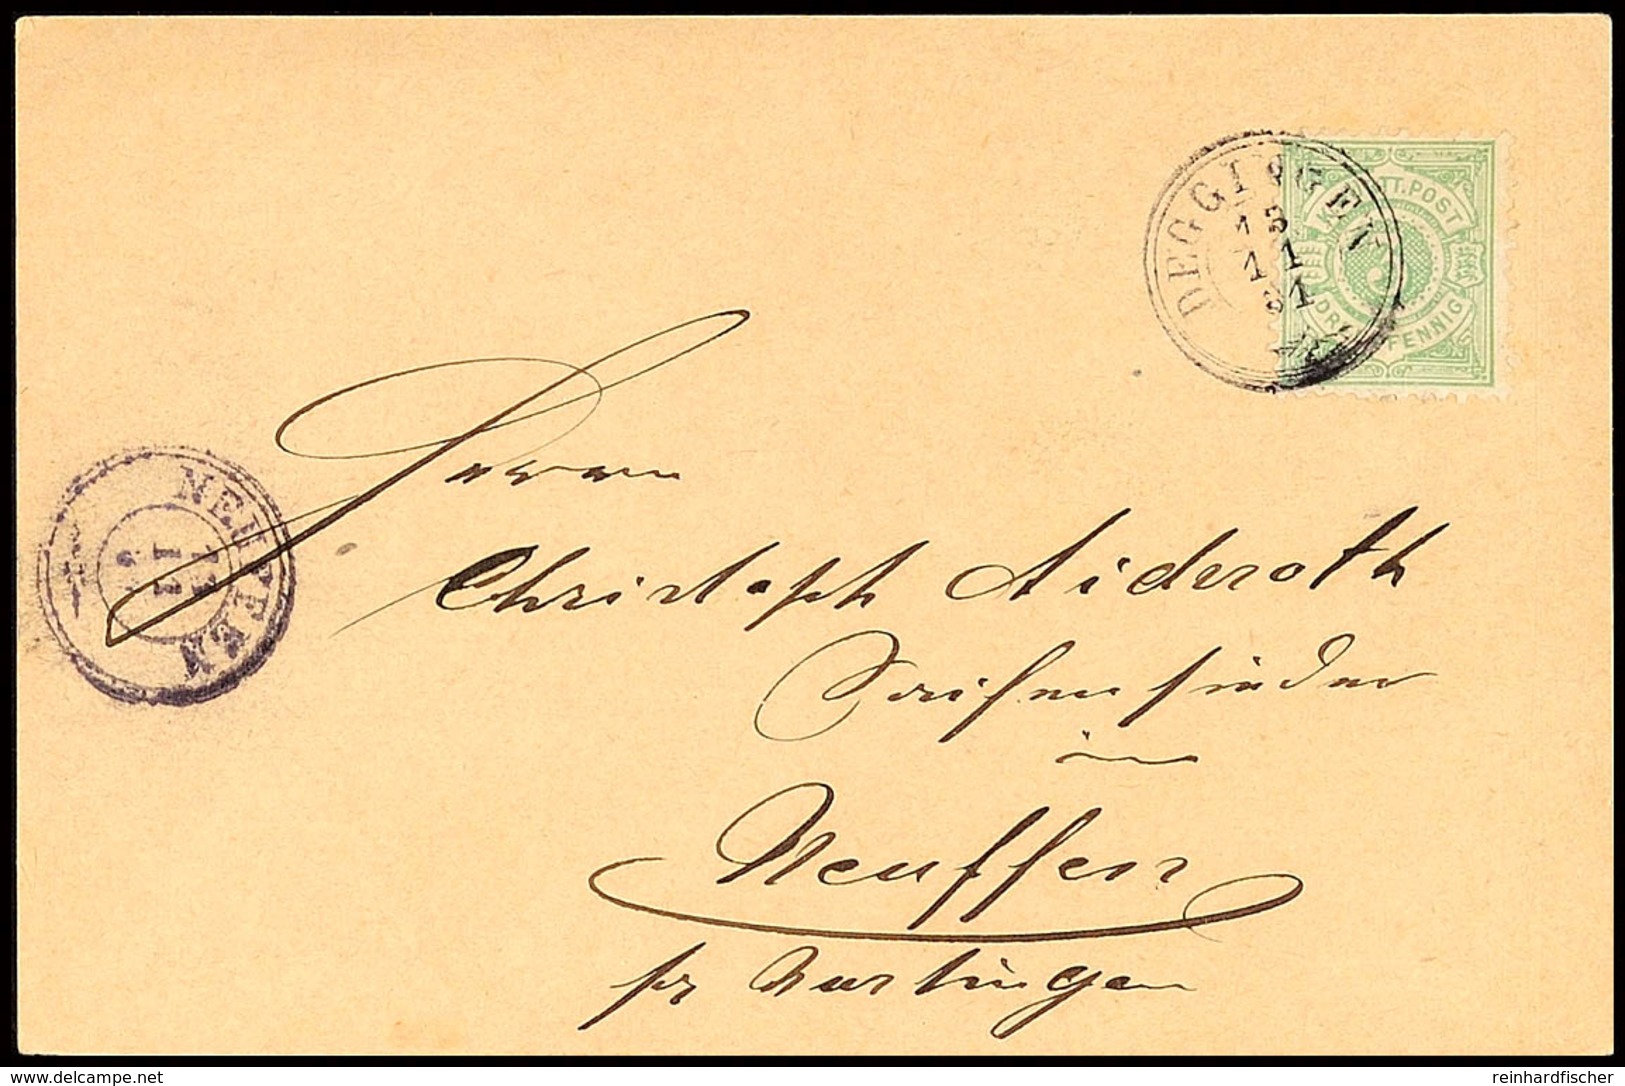 DEGGINGEN
15
11
81
K. WÜRTT. POST
DREI PFENNIG
NEUFFEN
Herrn
Christoph Aideroth
Seifensieder
in
Neuffen
pr Nürtingen
www.delcampe.net
reinhardfischer